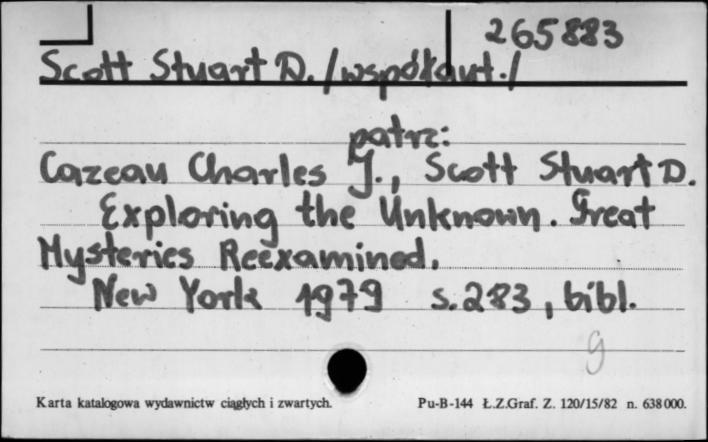 265883
Scott Stuart D. /współaut./
patrz:
Cazeau Charles J., Scott Stuart D.
Exploring the Unknown. Great
Mysteries Reexamined.
New York 1979 s. 283, bibl.
g
Karta katalogowa wydawnictw ciągłych i zwartych. Pu-B-144 Ł.Z.Graf. Z. 120/15/82 n. 638000.